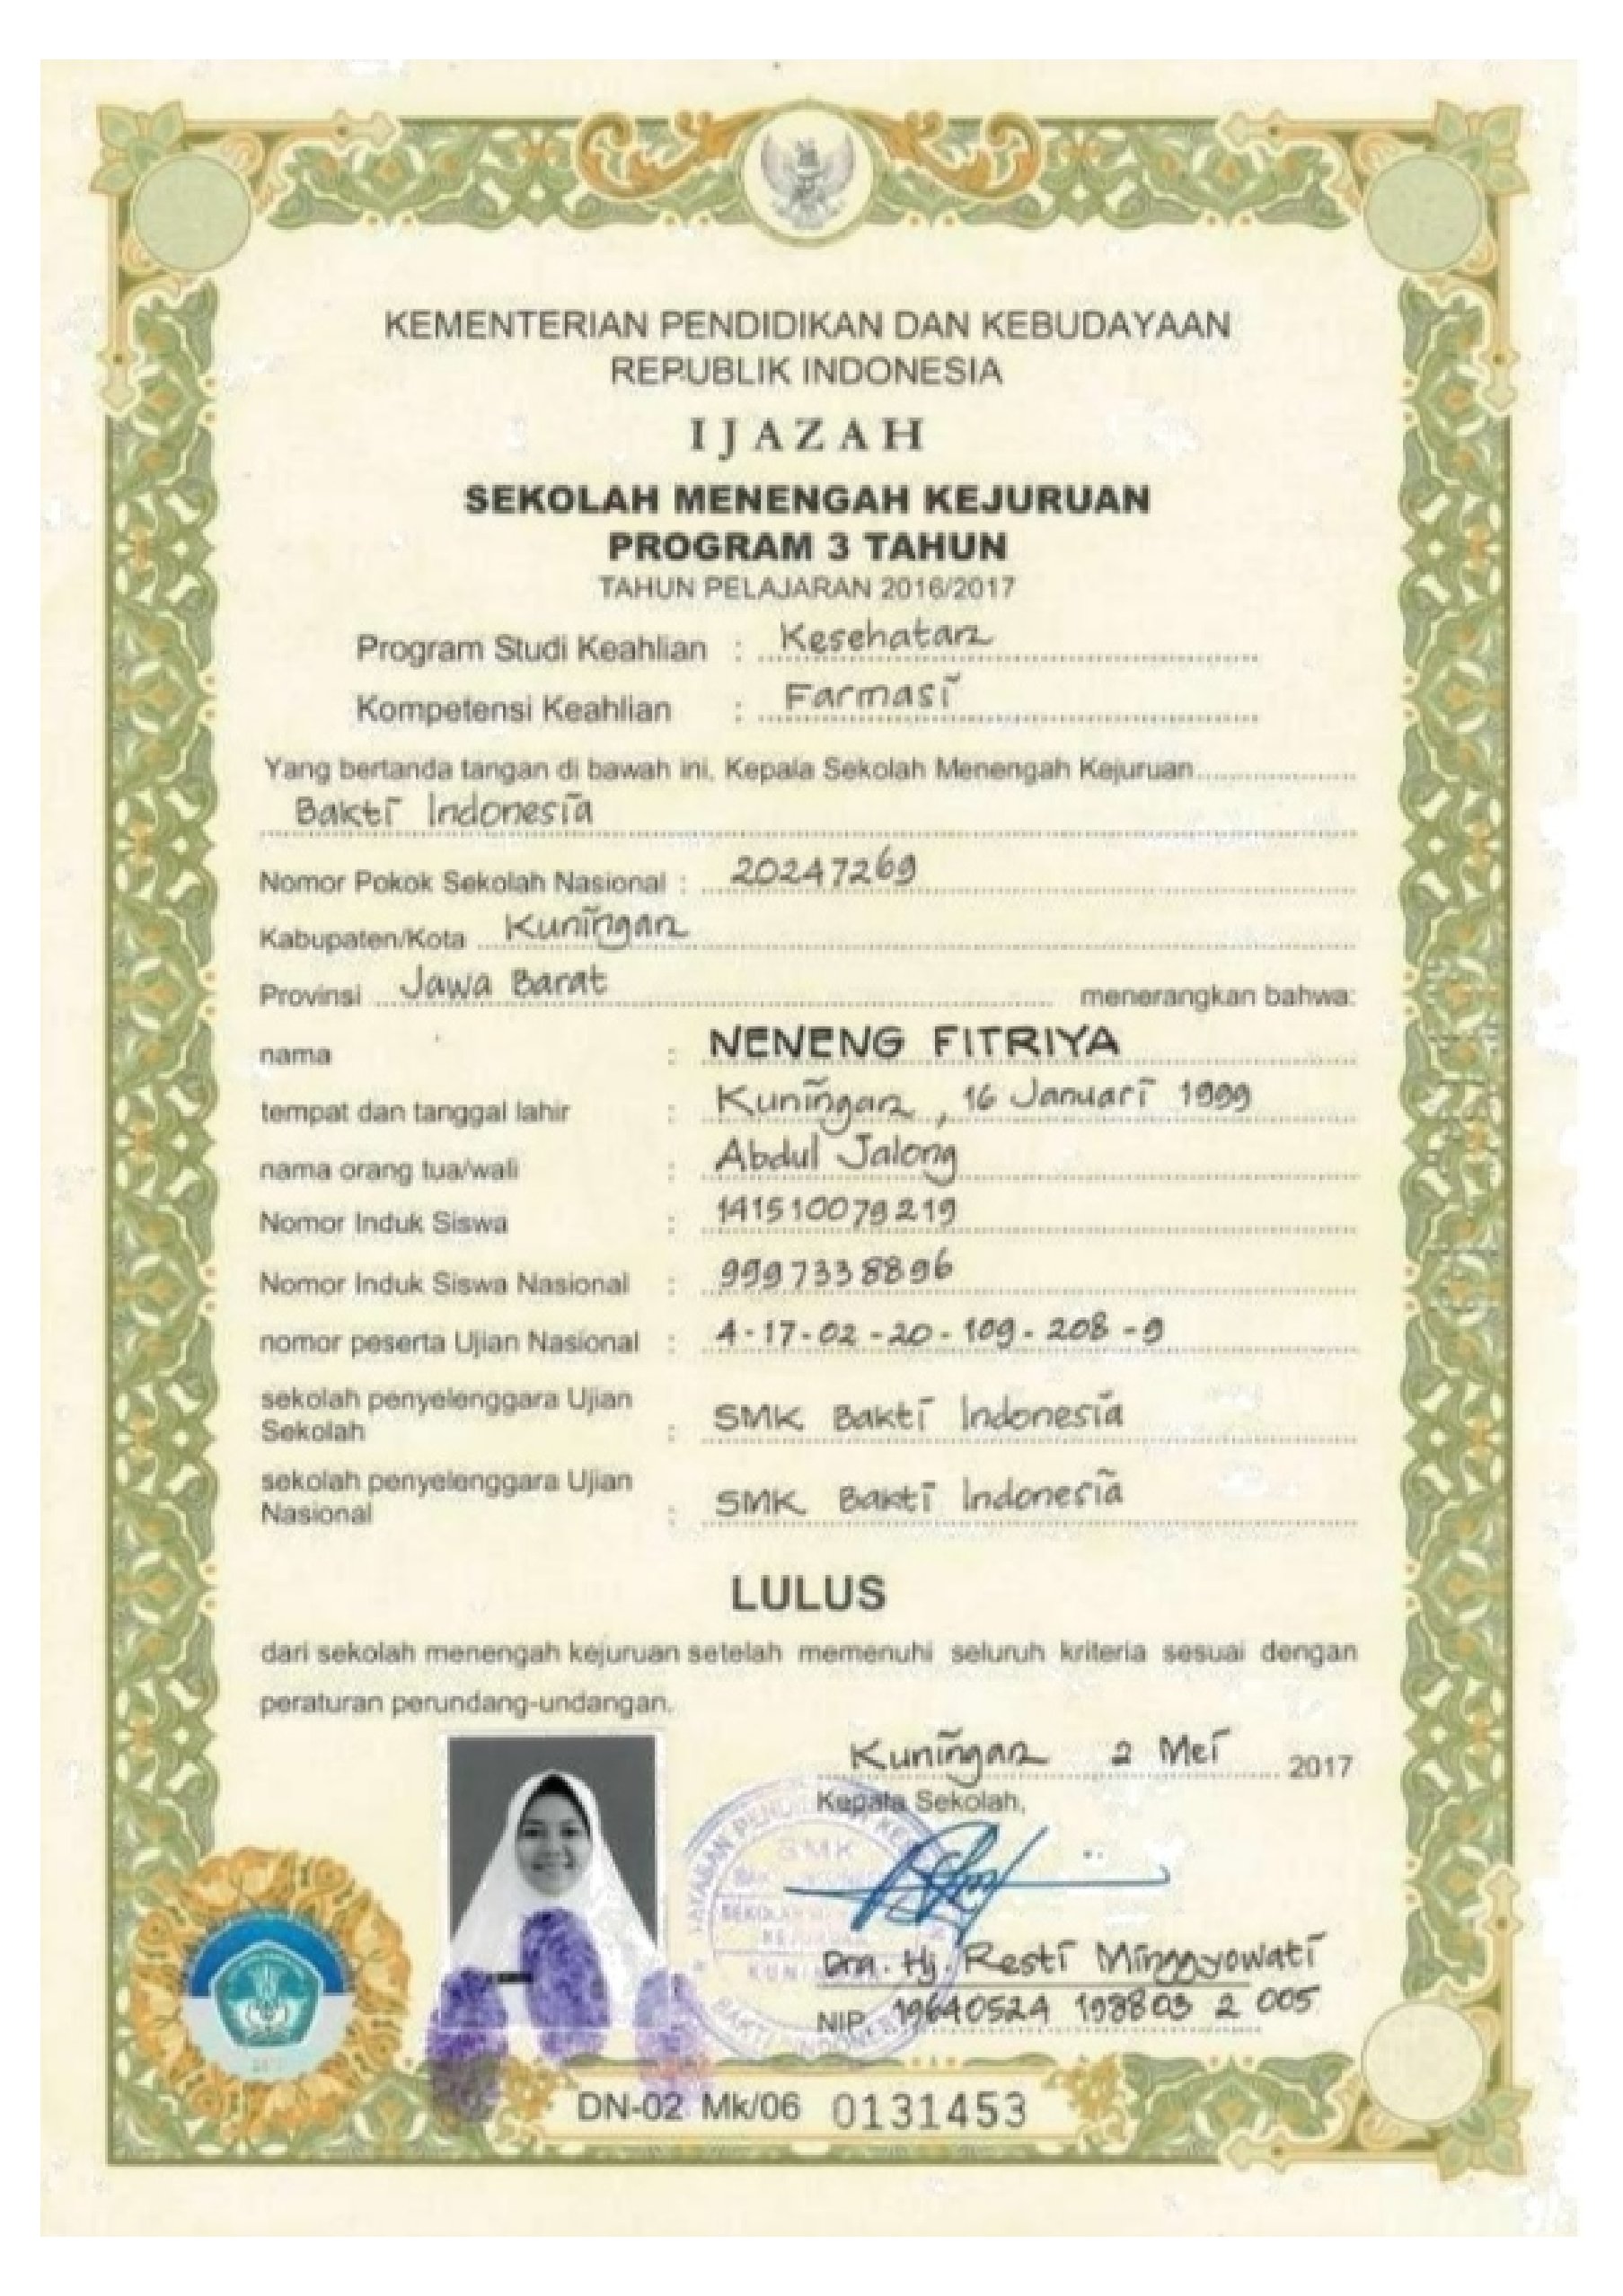 KEMENTERIAN PENDIDIKAN DAN KEBUDAYAAN
REPUBLIK INDONESIA
IJAZAH
SEKOLAH MENENGAH KEJURUAN
PROGRAM 3 TAHUN
TAHUN PELAJARAN 2016/2017
Program Studi Keahlian : Kesehatan
Kompetensi Keahlian : Farmasi
Yang bertanda tangan di bawah ini, Kepala Sekolah Menengah Kejuruan
Bakti Indonesia
Nomor Pokok Sekolah Nasional : 20247269
Kabupaten/Kota Kuningan
Provinsi Jawa Barat menerangkan bahwa:
nama : NENENG FITRIYA
tempat dan tanggal lahir : Kuningan, 16 Januari 1999
nama orang tua/wali : Abdul Jalong
Nomor Induk Siswa : 141510079219
Nomor Induk Siswa Nasional : 9997338896
nomor peserta Ujian Nasional : 4-17-02-20-109-208-9
sekolah penyelenggara Ujian
Sekolah : SMK Bakti Indonesia
sekolah penyelenggara Ujian
Nasional : SMK Bakti Indonesia
LULUS
dari sekolah menengah kejuruan setelah memenuhi seluruh kriteria sesuai dengan
peraturan perundang-undangan.
Kuningan 2 Mei 2017
Kepala Sekolah,
YAYASAN
SMK
KUNINGAN
BAKTI INDONESIA
Dra. Hj. Resti Minggyowati
NIP. 19640524 198803 2 005
DN-02 Mk/06 0131453